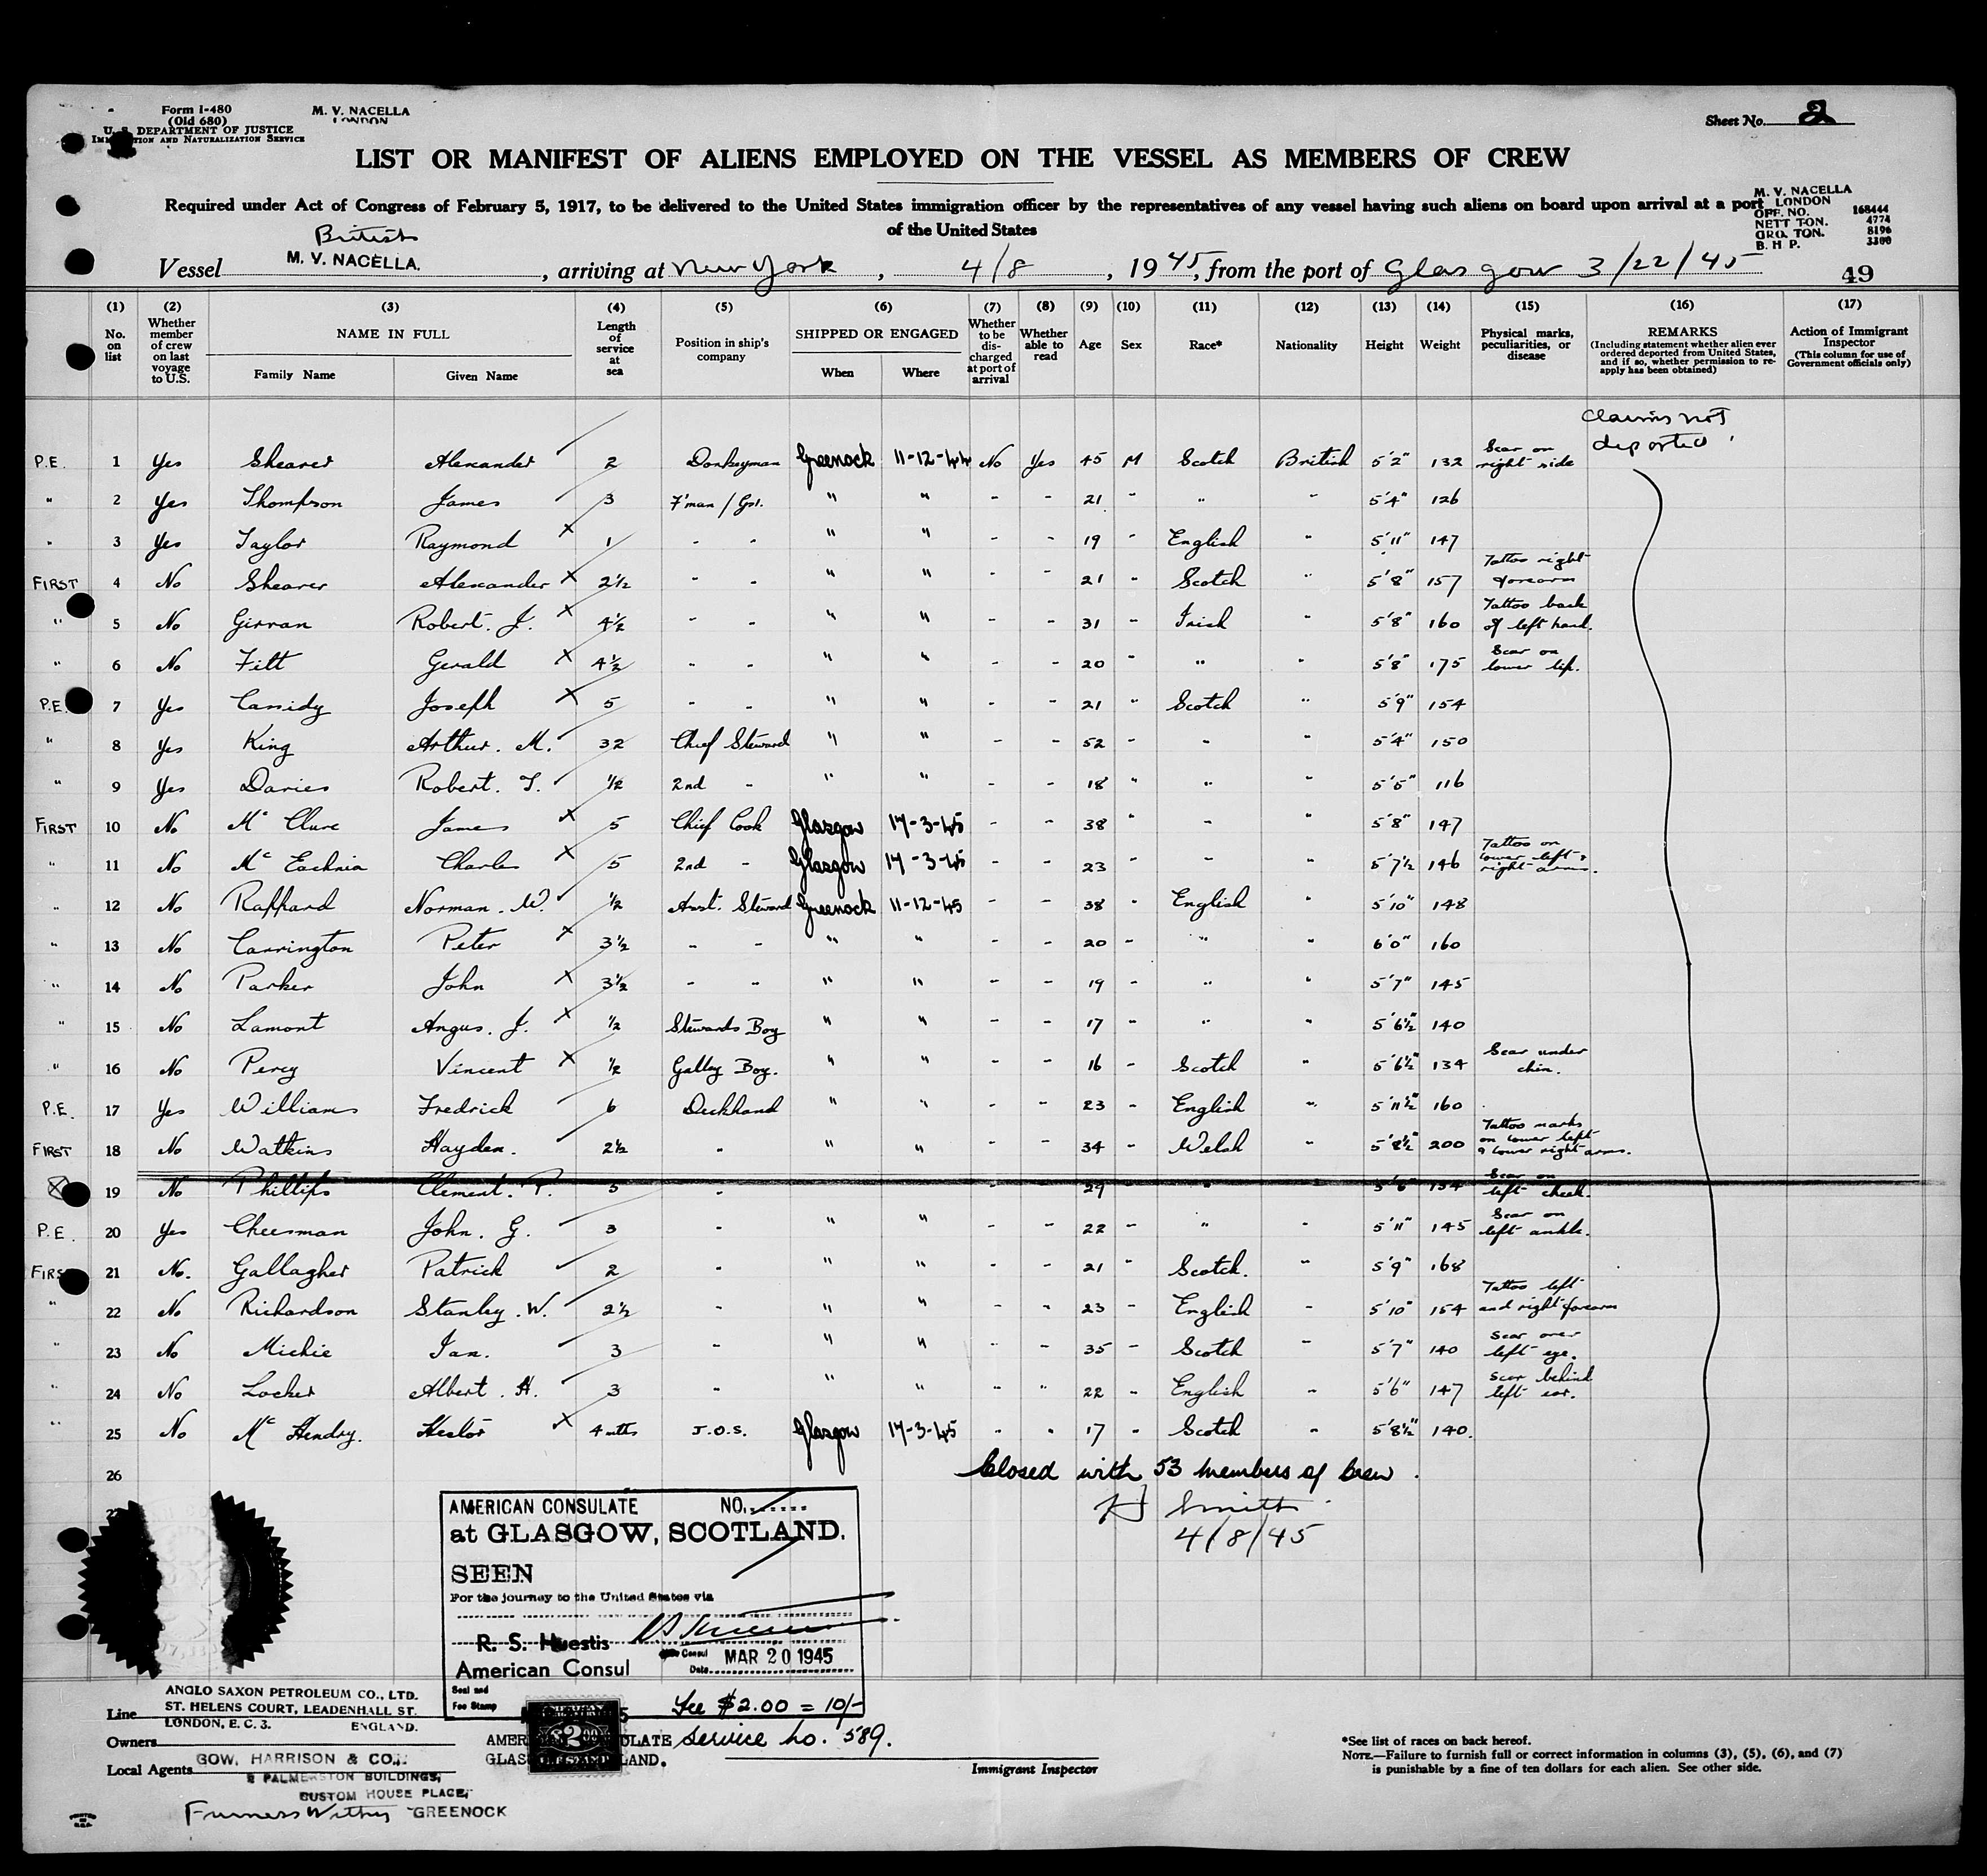 Form I-480
(Old 680)
U. S. DEPARTMENT OF JUSTICE
IMMIGRATION AND NATURALIZATION SERVICE
M. V. NACELLA
LONDON
Sheet No. 2
LIST OR MANIFEST OF ALIENS EMPLOYED ON THE VESSEL AS MEMBERS OF CREW
Required under Act of Congress of February 5, 1917, to be delivered to the United States immigration officer by the representatives of any vessel having such aliens on board upon arrival at a port
of the United States
M. V. NACELLA
LONDON
OFF. NO. 168444
NETT TON. 4774
GRO. TON. 8196
B. H P. 3300
British
Vessel M. V. NACELLA. , arriving at New York , 4/8 , 1945, from the port of Glasgow 3/22/45
49
(1) (2) (3) (4) (5) (6) (7) (8) (9) (10) (11) (12) (13) (14) (15) (16) (17)
No. on list
Whether member of crew on last voyage to U.S.
NAME IN FULL
Family Name
Given Name
Length of service at sea
Position in ship's company
SHIPPED OR ENGAGED
When
Where
Whether to be discharged at port of arrival
Whether able to read
Age
Sex
Race*
Nationality
Height
Weight
Physical marks, peculiarities, or disease
REMARKS
(Including statement whether alien ever ordered deported from United States, and if so, whether permission to re-apply has been obtained)
Action of Immigrant Inspector
(This column for use of Government officials only)
Claims not
deported
P.E. 1 Yes Shearer Alexander 2 Donkeyman Greenock 11-12-44 No Yes 45 M Scotch British 5'2" 132 Scar on right side
" 2 Yes Thompson James 3 F'man / Gsr. " " - - 21 - " " 5'4" 126
" 3 Yes Taylor Raymond X 1 - - " " - - 19 - English " 5'11" 147
FIRST 4 No Shearer Alexander X 2½ - - " " - - 21 " Scotch " 5'8" 157 Tattoo right forearm
" 5 No Girvan Robert. J. X 4½ - - " " - - 31 - Irish " 5'8" 160 Tattoo back of left hand.
" 6 No Fitt Gerald X 4½ - - " " - - 20 - " " 5'8" 175 Scar on lower lip.
P.E. 7 Yes Cassidy Joseph X 5 - - " " - - 21 " Scotch " 5'9" 154
" 8 Yes King Arthur. M. 32 Chief Steward " " - - 52 - " " 5'4" 150
" 9 Yes Davies Robert. T. ½ 2nd - " " - - 18 " " " 5'5" 116
FIRST 10 No Mc Clure James X 5 Chief Cook Glasgow 17-3-45 - - 38 " - " 5'8" 147
" 11 No Mc Eachnia Charles X 5 2nd - Glasgow 17-3-45 - - 23 - " 5'7½ 146 Tattoo on lower left & right arms.
" 12 No Raphard Norman. W. ½ Asst. Steward Greenock 11-12-45 - - 38 - English " 5'10" 148
" 13 No Carrington Peter X 3½ - - " " - - 20 - " " 6'0" 160
" 14 No Parker John X 3½ - - " " - - 19 - " " 5'7" 145
" 15 No Lamont Angus. J. X ½ Stewards Boy " " - - 17 - " " 5'6½ 140
" 16 No Percy Vincent X ½ Galley Boy. " " - - 16 - Scotch " 5'6½" 134 Scar under chin.
P.E. 17 Yes Williams Fredrick 6 Deckhand " " - - 23 - English " 5'11½" 160
FIRST 18 No Watkins Hayden. 2½ - " " - - 34 - Welsh " 5'8½" 200 Tattoo marks on lower left & lower right arms.
X 19 No Phillips Clement. P. 5 - - - 29 - " 5'6" 154 Scar on left cheek.
P.E. 20 Yes Cheesman John. G. 3 - " " - - 22 - " " 5'11" 145 Scar on left ankle.
FIRST 21 No. Gallagher Patrick 2 - " " - - 21 - Scotch. " 5'9" 168
" 22 No Richardson Stanley. W. 2½ - " " - - 23 - English - 5'10" 154 Tattoo left and right forearm
" 23 No Michie Ian. 3 - " " - - 35 - Scotch - 5'7" 140 Scar over left eye.
" 24 No Locker Albert. H. 3 - " " - - 22 - English - 5'6" 147 Scar behind left ear.
" 25 No Mc Hendry. Hector X 4 mths J.O.S. Glasgow 17-3-45 - - 17 - Scotch - 5'8½" 140.
26
Closed with 53 members of crew.
27
Smith
4/8/45
AMERICAN CONSULATE NO.
at GLASGOW, SCOTLAND.
SEEN
For the journey to the United States via
R. S. Huestis
American Consul
Consul
Date MAR 20 1945
Seal and
Fee Stamp
Fee $2.00 = 10/-
Service No. 589.
AMERICAN CONSULATE
GLASGOW, SCOTLAND.
Line ANGLO SAXON PETROLEUM CO., LTD.
ST. HELENS COURT, LEADENHALL ST.
LONDON, E. C. 3. ENGLAND.
Owners
Local Agents GOW, HARRISON & CO.,
PALMERSTON BUILDINGS,
CUSTOM HOUSE PLACE,
Furness Withy GREENOCK
Immigrant Inspector
*See list of races on back hereof.
NOTE.—Failure to furnish full or correct information in columns (3), (5), (6), and (7)
is punishable by a fine of ten dollars for each alien. See other side.